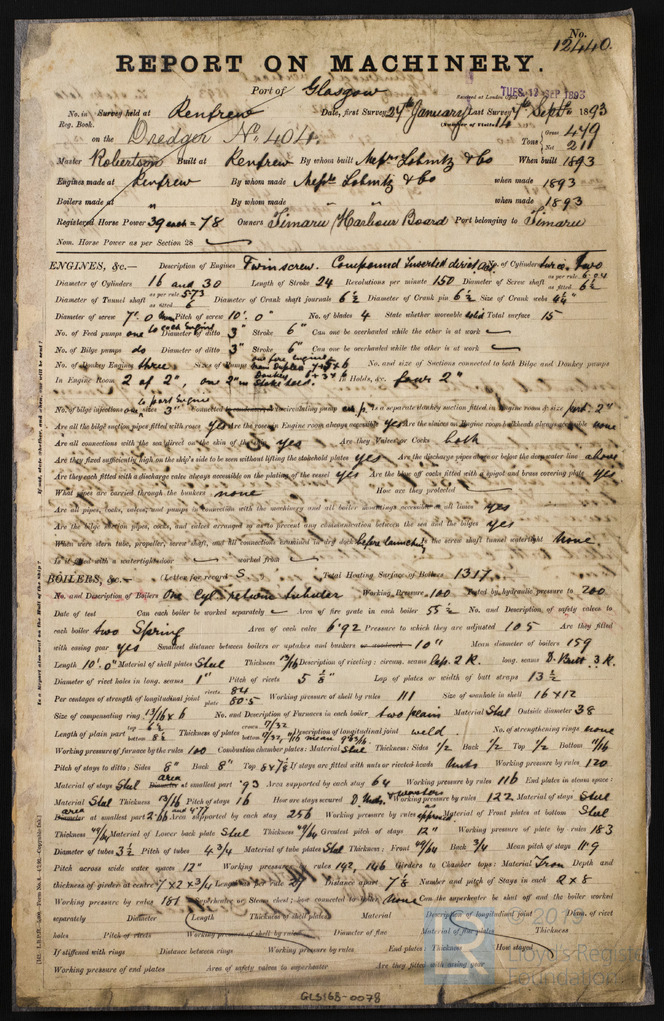 No. 12440.
REPORT ON MACHINERY.
Port of Glasgow
Received at London Office TUES. 12 SEP 1893
No. in Survey held at Renfrew Date, first Survey 24th January Last Survey 7th Septr 1893
Reg. Book. (Number of Visits 14
on the Dredger No. 404. Tons Gross 449 Net 211
Master Robertson Built at Renfrew By whom built Messrs Lobnitz & Co When built 1893
Engines made at Renfrew By whom made Messrs Lobnitz & Co when made 1893
Boilers made at " By whom made " " when made 1893
Registered Horse Power 39 each = 78 Owners Timaru Harbour Board Port belonging to Timaru
Nom. Horse Power as per Section 28
ENGINES, &c.— Description of Engines Twin screw. Compound Inverted direct No. of Cylinders two
Diameter of Cylinders 16 and 30 Length of Stroke 24 Revolutions per minute 150 Diameter of Screw shaft as per rule 6.04 as fitted 6½
Diameter of Tunnel shaft as per rule 5.73 as fitted 6 Diameter of Crank shaft journals 6½ Diameter of Crank pin 6½ Size of Crank webs
Diameter of screw 7'. 0 Pitch of screw 10'. 0" No. of blades 4 State whether moveable solid Total surface 15
No. of Feed pumps one to each Engine Diameter of ditto 3" Stroke 6" Can one be overhauled while the other is at work
No. of Bilge pumps do Diameter of ditto 3" Stroke 6" Can one be overhauled while the other is at work
No. of Donkey Engines three Sizes of Pumps No. and size of Suctions connected to both Bilge and Donkey pumps
In Engine Room 2 of 2", one 2" in Stoke hold. In Holds, &c. four 2"
to port Engine
No. of bilge injections one sizes 3" Connected to circulating pump Is a separate donkey suction fitted in Engine room & size 2"
Are all the bilge suction pipes fitted with roses yes Are the roses in Engine room always accessible yes Are the sluices on Engine room bulkheads always accessible none
Are all connections with the sea direct on the skin of the ship yes Are they Valves or Cocks both
Are they fixed sufficiently high on the ship's side to be seen without lifting the stokehold plates yes Are the discharge pipes above or below the deep water line above
Are they each fitted with a discharge valve always accessible on the plating of the vessel yes Are the blow off cocks fitted with a spigot and brass covering plate yes
What pipes are carried through the bunkers none How are they protected
Are all pipes, cocks, valves, and pumps in connection with the machinery and all boiler mountings accessible at all times yes
Are the bilge suction pipes, cocks, and valves arranged so as to prevent any communication between the sea and the bilges yes
When were stern tube, propeller, screw shaft, and all connections examined in dry dock before launching Is the screw shaft tunnel watertight None
Is it fitted with a watertight door worked from
BOILERS, &c.— (Letter for record S Total Heating Surface of Boilers 1317
No. and Description of Boilers One Cyl. return tubular Working Pressure 100 Tested by hydraulic pressure to 200
Date of test Can each boiler be worked separately Area of fire grate in each boiler 55½ No. and Description of safety valves to
each boiler two Spring Area of each valve 6.92 Pressure to which they are adjusted 105 Are they fitted
with easing gear yes Smallest distance between boilers or uptakes and bunkers 10" Mean diameter of boilers 159
Length 10'. 0" Material of shell plates Steel Thickness 13/16 Description of riveting: circum. seams Lap. 2 R. long. seams D. Butt 3 R.
Diameter of rivet holes in long. seams 1" Pitch of rivets Lap of plates or width of butt straps 13½
Per centages of strength of longitudinal joint rivets 84 plate 80.5 Working pressure of shell by rules 111 Size of manhole in shell 16 x 12
Size of compensating ring 13/16 x 6 No. and Description of Furnaces in each boiler two plain Material Steel Outside diameter 38
Length of plain part Thickness of plates Description of longitudinal joint weld. No. of strengthening rings none
Working pressure of furnace by the rules 100 Combustion chamber plates: Material Steel Thickness: Sides ½ Back ½ Top ½ Bottom 11/16
Pitch of stays to ditto: Sides 8" Back 8" Top 8 x 7⅞ If stays are fitted with nuts or riveted heads nuts Working pressure by rules 120
Material of stays Steel area at smallest part .93 Area supported by each stay 64 Working pressure by rules 116 End plates in steam space:
Material Steel Thickness 13/16 Pitch of stays 16 How are stays secured D. Nuts & washers Working pressure by rules 122 Material of stays Steel
area at smallest part Area supported by each stay 256 Working pressure by rules Material of Front plates at bottom Steel
Thickness Material of Lower back plate Steel Thickness Greatest pitch of stays 12" Working pressure of plate by rules 183
Diameter of tubes 3½ Pitch of tubes 4¾ Material of tube plates Steel Thickness: Front Back ¾ Mean pitch of stays 11.9
Pitch across wide water spaces 12" Working pressures by rules 142, 146 Girders to Chamber tops: Material Iron Depth and
thickness of girder at centre 7 x 2 x ¾ Length as per rule 27 Distance apart 7½ Number and pitch of Stays in each 2 x 8
Working pressure by rules 181 Superheater or Steam chest; how connected to boiler None Can the superheater be shut off and the boiler worked
separately Diameter Length Thickness of shell plates Material Description of longitudinal joint Diam. of rivet
holes Pitch of rivets Working pressure of shell by rules Diameter of flue Material of flue plates Thickness
If stiffened with rings Distance between rings Working pressure by rules End plates: Thickness How stayed
Working pressure of end plates Area of safety valves to superheater Are they fitted with easing gear
Is a Report also sent on the Hull of the Ship?
GLS168-0078
© 2019
Lloyd's Register
Foundation